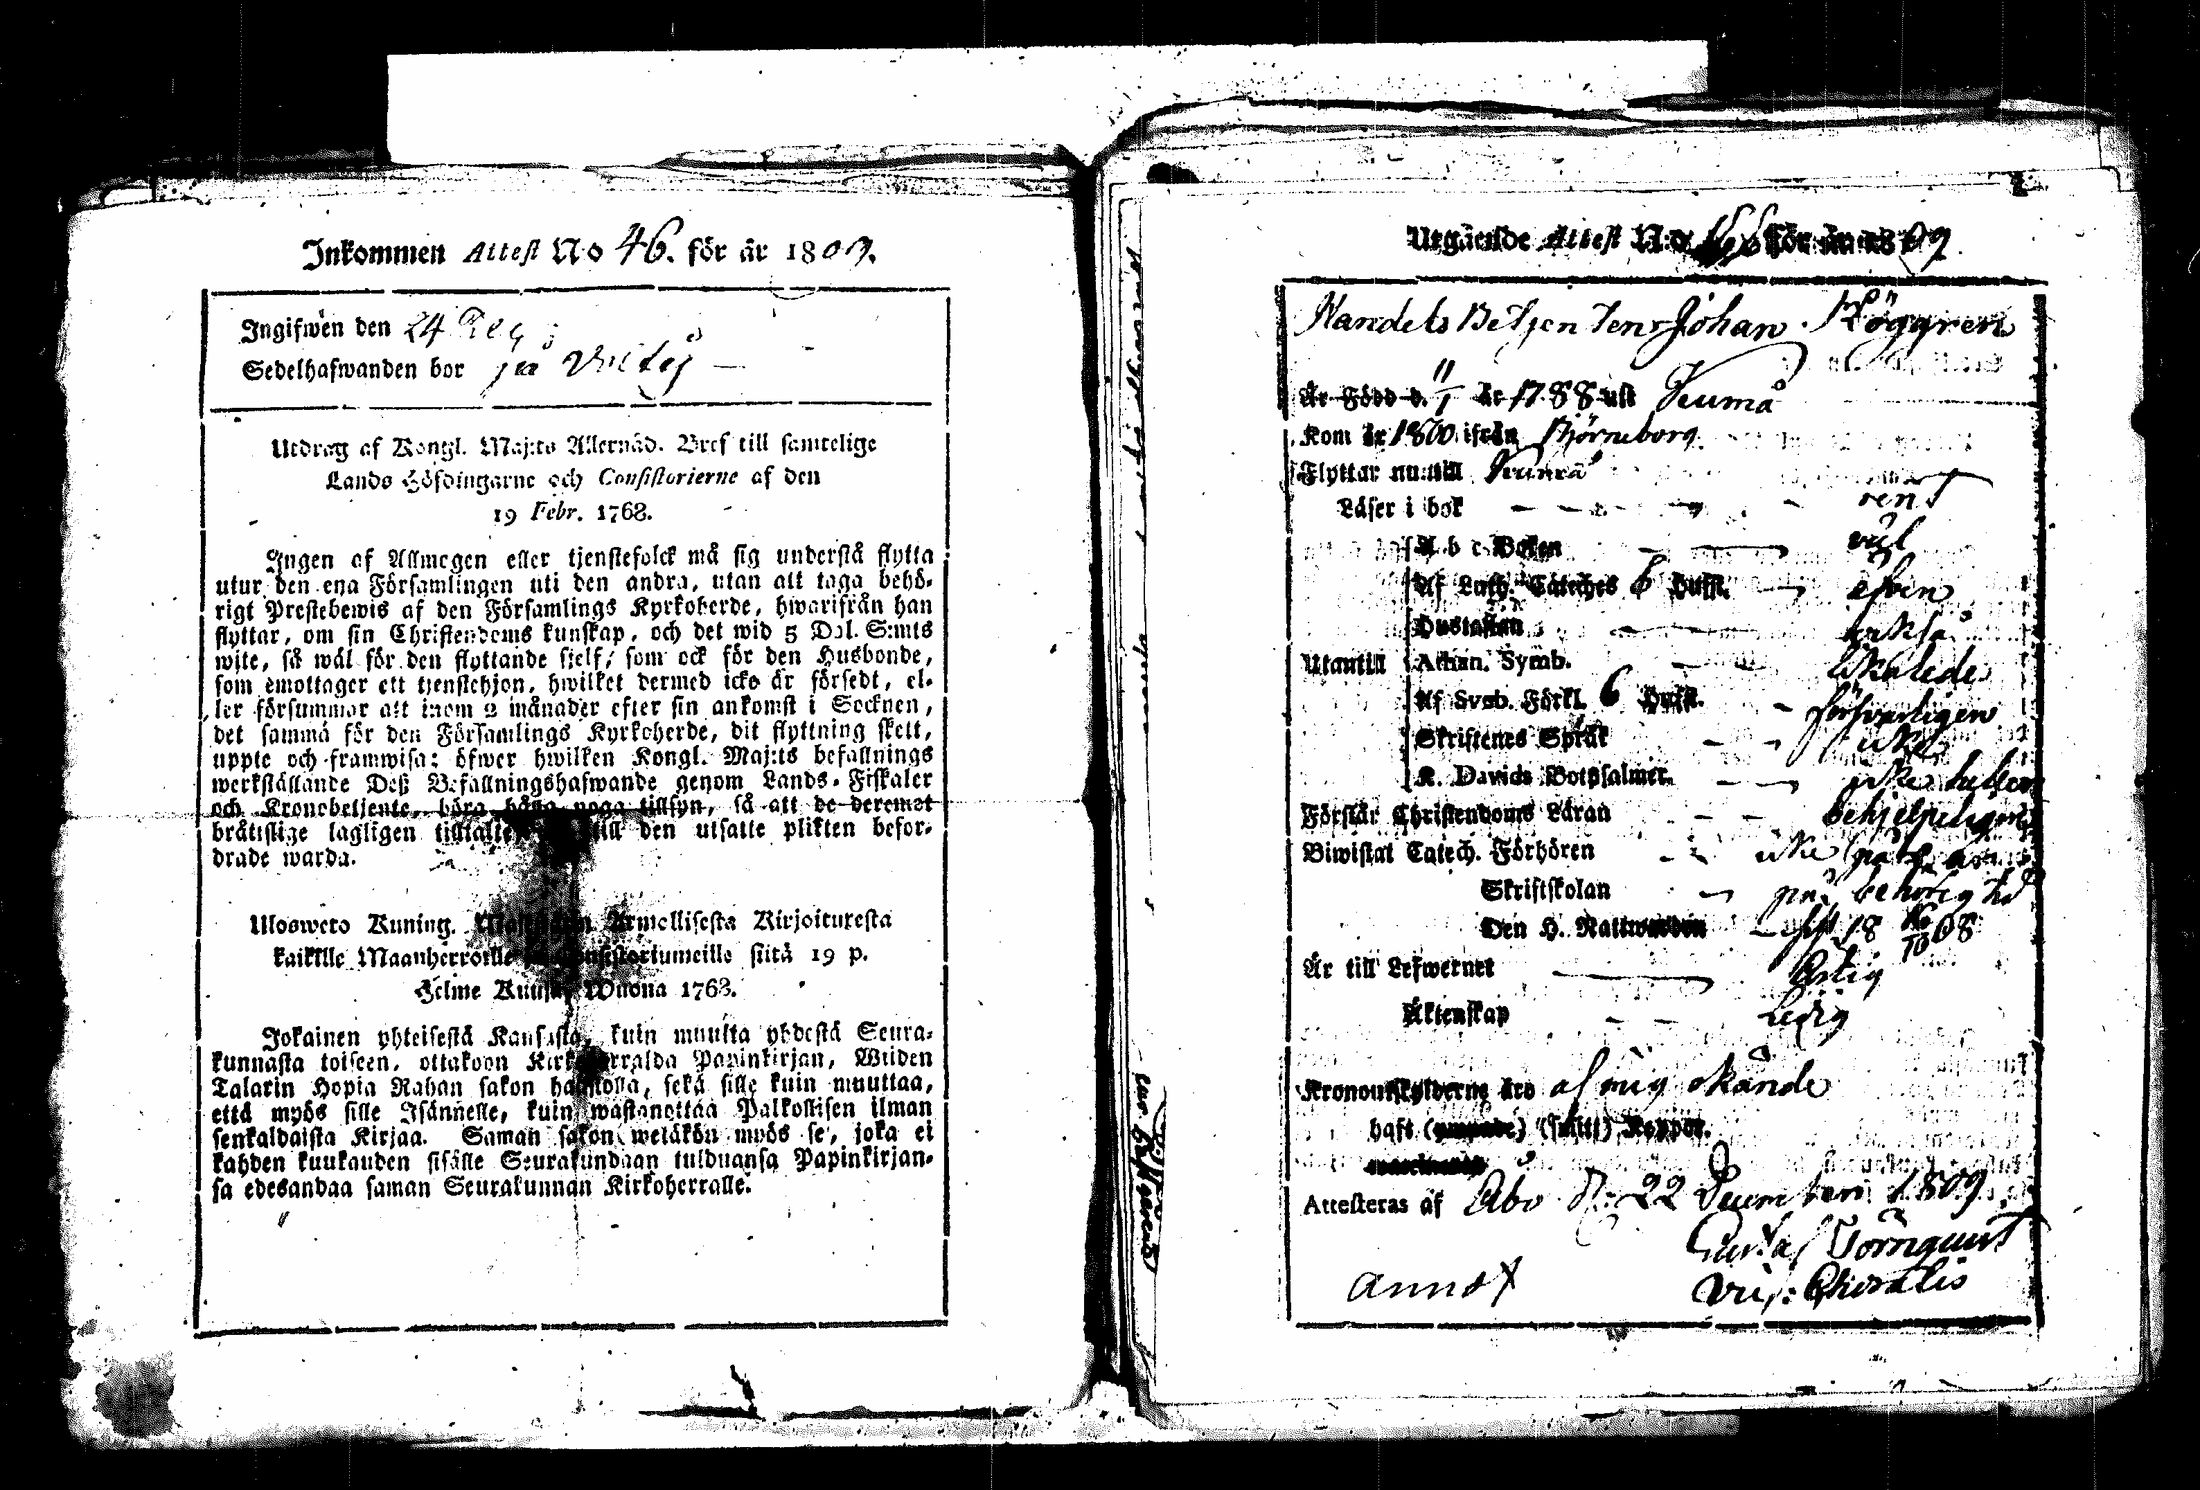 Inkommen Attest No 46. för år 1809.
Ingifwen den 24
Sedelhafwanden bor på
Utdrag af Kongl. Maj:ts Allernåd. Bref till samtelige
Lands Höfdingarne och Consistorierne af den
19 Febr. 1768.
Ingen af Allmogen eller tjenstefolck må sig understå flytta
utur den ena Församlingen uti den andra, utan att taga behö-
rigt Prestebewis af den Församlings Kyrkoherde, hwarifrån han
flyttar, om sin Christendoms kunskap, och det wid 5 Dal. S:mts
wite, så wäl för den flyttande sjelf, som ock för den Husbonde,
som emottager ett tjenstehjon, hwilket dermed icke är försedt, el-
ler försummar att inom 2 månader efter sin ankomst i Socknen,
det samma för den Församlings Kyrkoherde, dit flyttning skett,
uppte och framwisa: öfwer hwilken Kongl. Maj:ts befallnings
werkställande Deß Befallningshafwande genom Lands-Fiskaler
och Kronobetjente, böra hafwa noga tillsyn, så att de deremot
bråttslige lagligen till den utsatte plikten befor-
drade warda.
Ulosweto Kuning. Armollisesta Kirjoituxesta
kaikille Maanherroille Consistoriumeille siitä 19 p.
Helme Kuusa Wuona 1768.
Jokainen yhteisestä Kansasta, kuin muulta yhdestä Seura-
kunnasta toiseen, ottakoon Kirkoherralda Papinkirjan, Wiiden
Talarin Hopia Rahan sakon haastolla, sekä sille kuin muuttaa,
että myös sille Isännelle, kuin wastanottaa Palkollisen ilman
senkaldaista Kirjaa. Saman sakon wetäkön myös se, joka ei
kahden kuukauden sisälle Seurakundaan tulduansa Papinkirjan-
sa edesandaa saman Seurakunnan Kirkoherralle.
Utgående Attest N:o för år 1809
Handels Betjenten Johan Röggren
Är Född d. 11/1 år 1788 uti Kumå
Kom år 1800 ifrån Björneborg
Flyttar nu till Kumå
Läser i bok rent
A b c Boken väl
Af Luth. Cateches 6 Hufst. äfven
Hustaflan också
Utantill Athan. Symb. likaledes
Af Sveb. Förkl. 6 Hufst. försvarligen
Skriftenes Språk icke
K. Davids Botpsalmer icke heller
Förstår Christendoms Läran behjelpeligen
Biwistat Catech. Förhören icke på
Skriftskolan på behörig tid
Den H. Nattwarden sist 18 10 08
Är till Lefwernet Ärlig
Äktenskap Ledig
Kronoutskylderne äro af mig okände
haft Koppor.
Attesteras af Åbo d. 22 December 1809.
Gustaf Törnquist
Vic: Choralis
annot